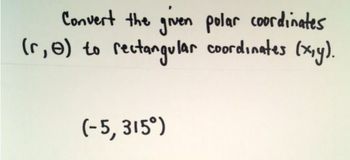 Convert the given polar coordinates
(r, Θ) to rectangular coordinates (x,y).
(-5, 315°)